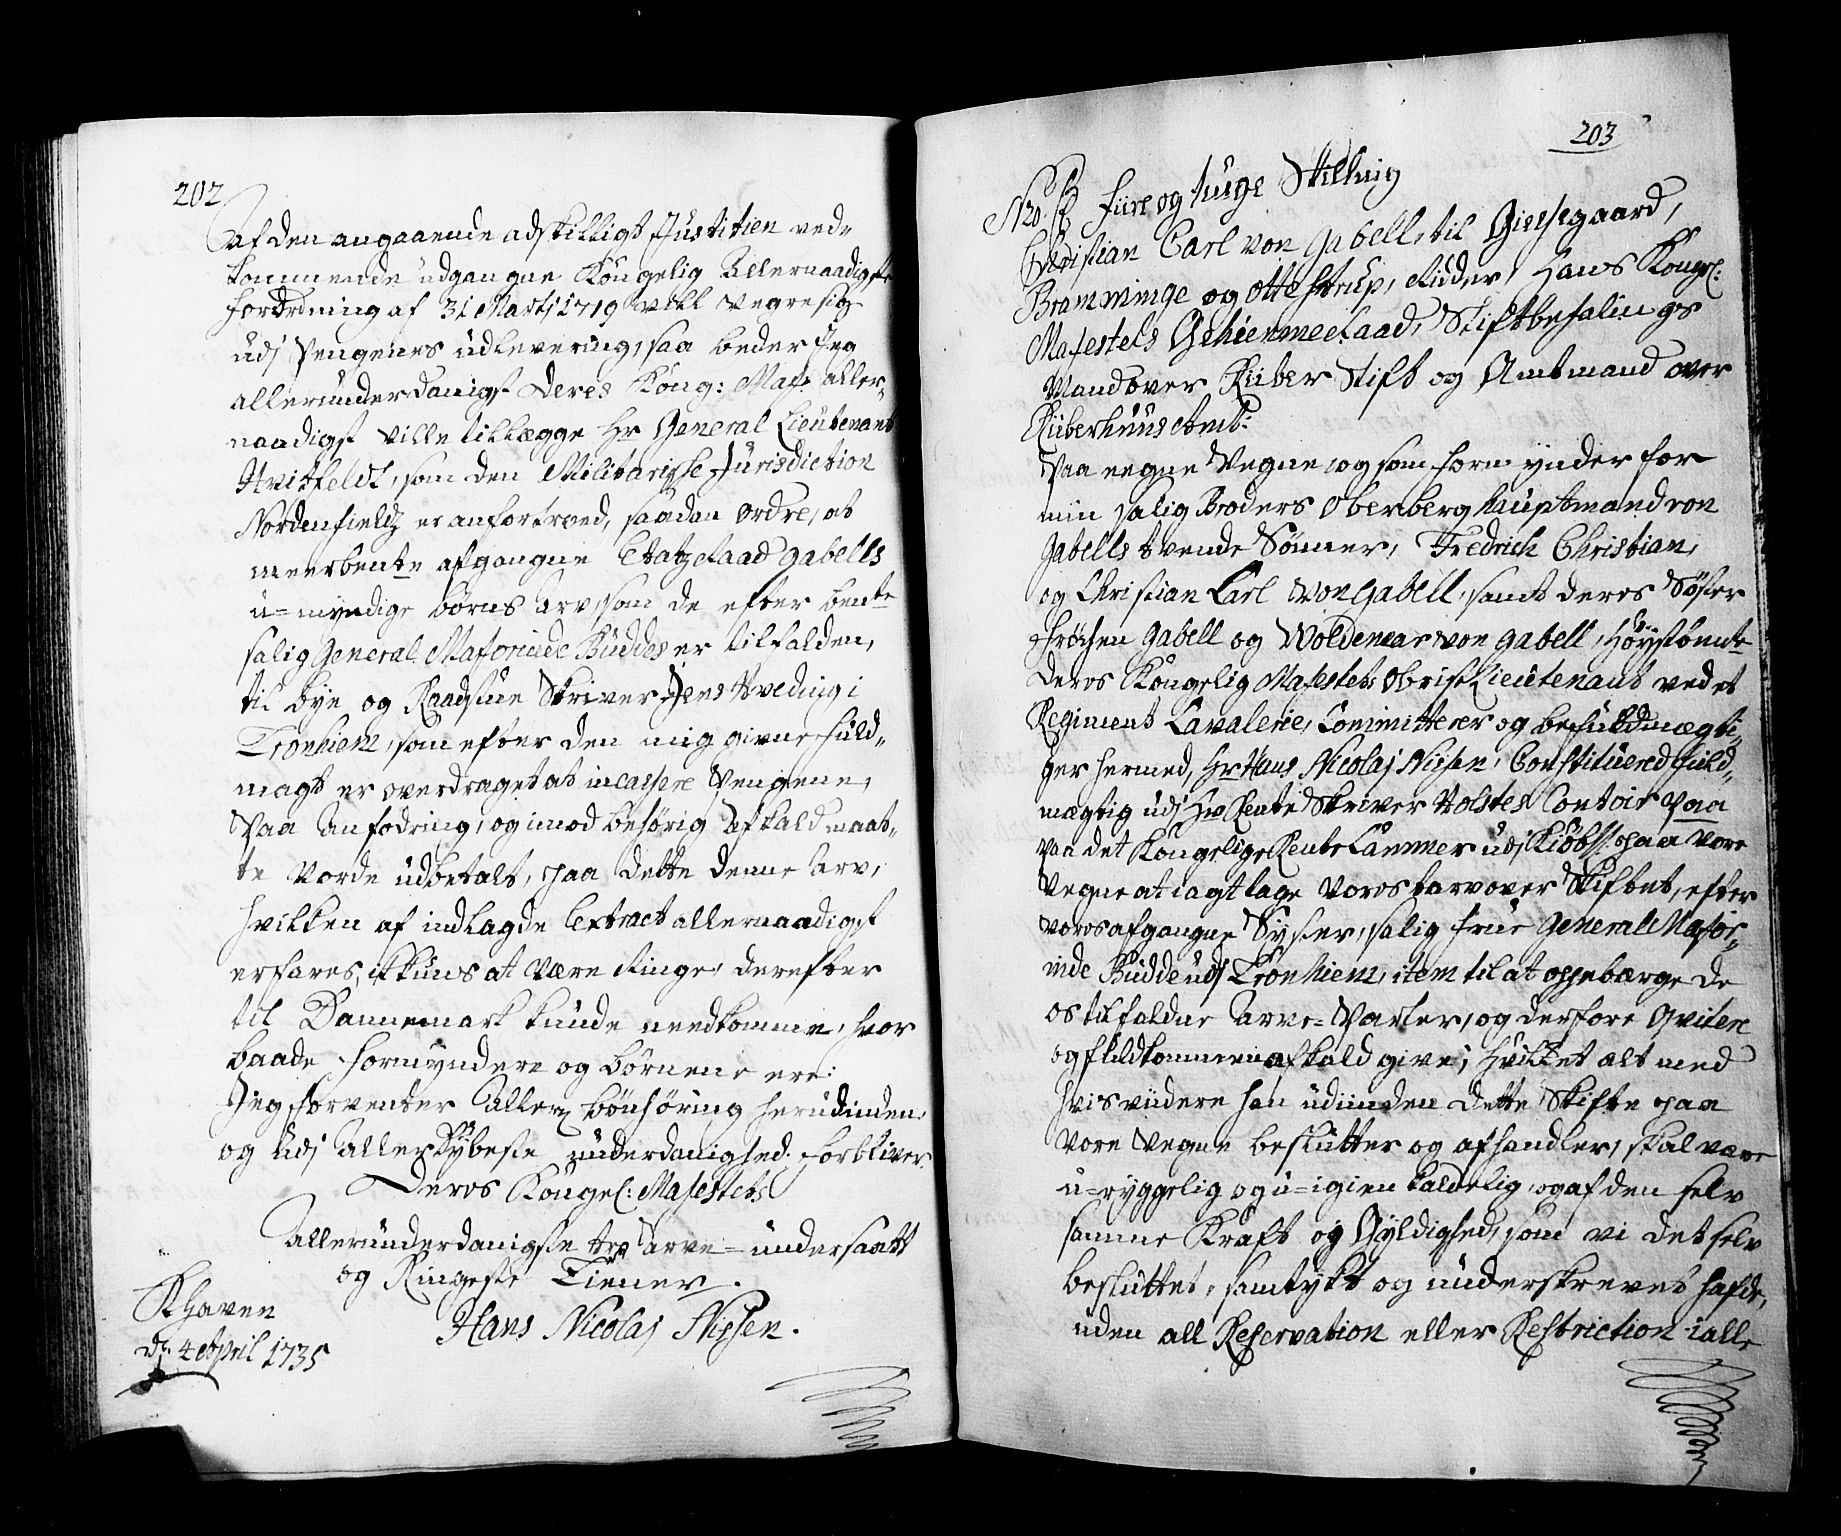 202
af den angaaende adskilligt Justitien ved-
kommende udgangne Kongelig Allernaadigste
fordning af 31 Martj 1719 vill vegre sig
udj Pengenes udlevering, saa beder Jeg
allerunderdanigst Deres Kong: Majt aller-
naadigst ville tillægge Hr General Lieutenant
Hvitfeldt, som den Militariske Jurisdiction
Nordenfieldz er anfortroed, saadan Ordre, at
meerbente afgangne Etatzraad Gabells
u-myndige børns arv, som de efter bente
salig General Majorinde Buddes er tilfalden,
til bye og Raadstue Skriver Jens Hveding i
Tronhiem, som efter den mig givne fuld-
magt er overdraget at incassere Pengene,
Paa Anfodring, og imod behørig Afkald maat-
te vorde udbetalt, paa dette denne Arv,
hvilken af indlagde Extract allernaadigst
erfares, ikkuns at være Ringe, derefter
til Dannemark kunde needkomme, hvor
baade formyndere og børnene ere:
Jeg forventer Allern bønhøring herudinden,
og udj allerdybeste underdanighed forbliver
Deres Kongel: Majestets
Allerunderdanigste troe Arve-undersaatt
og Ringeste Tiener.
Khaven
d. 4 April 1735
Hans Nicolaj Nissen.
203
No. fiire og tiuge Skilling
Christian Carl von Gabell, til Giessegaard,
Bramminge og Ottestrup, Ridder, Hans Kongel:
Majestets Geheimeraad, Stiftbefalings
Mand over Riiber Stift og Amtmand over
Riiberhuus Amt:
Paa eegne Vegne og som formynder for
min salig Broders Oberberghauptmand von
Gabells tvende Sønner, Fredrich Christian,
og Christian Carl von Gabell, samt deres Søster
Frøchen Gabell og Woldemar von Gabell, Høystbente
Deres Kongelig Majestets Obrist Lieutenant ved et
Regiment Cavalerie, Committerer og befuldmægti-
ger hermed, Hr Hans Nicolaj Nissen, Constituered fuld-
mægtig udj Hr Rente Skriver Holstes Contoir paa
paa det Kongelige Rente Cammer udj Kiøbh. paa vore
Vegne at iagttage vores tarv over Skiftet, efter
vores afgangne Syster, salig Frue General Major-
inde Budde udj Tronhiem, item til at oppebærge de
os tilfaldne Arve-Parter, og derfore Qvitere
og fuldkommen afkald give, hvilket alt med
hvis viidere han udinden dette Skifte paa
vore Vegne beslutter og afhandler, skal være
u-ryggelig og u-igienkaldelig, og af den selv
samme Kraft og Gyldighed, som vi det selv
besluttet, samtykt og underskrevet hafde,
uden all Reservation eller Restriction i alle